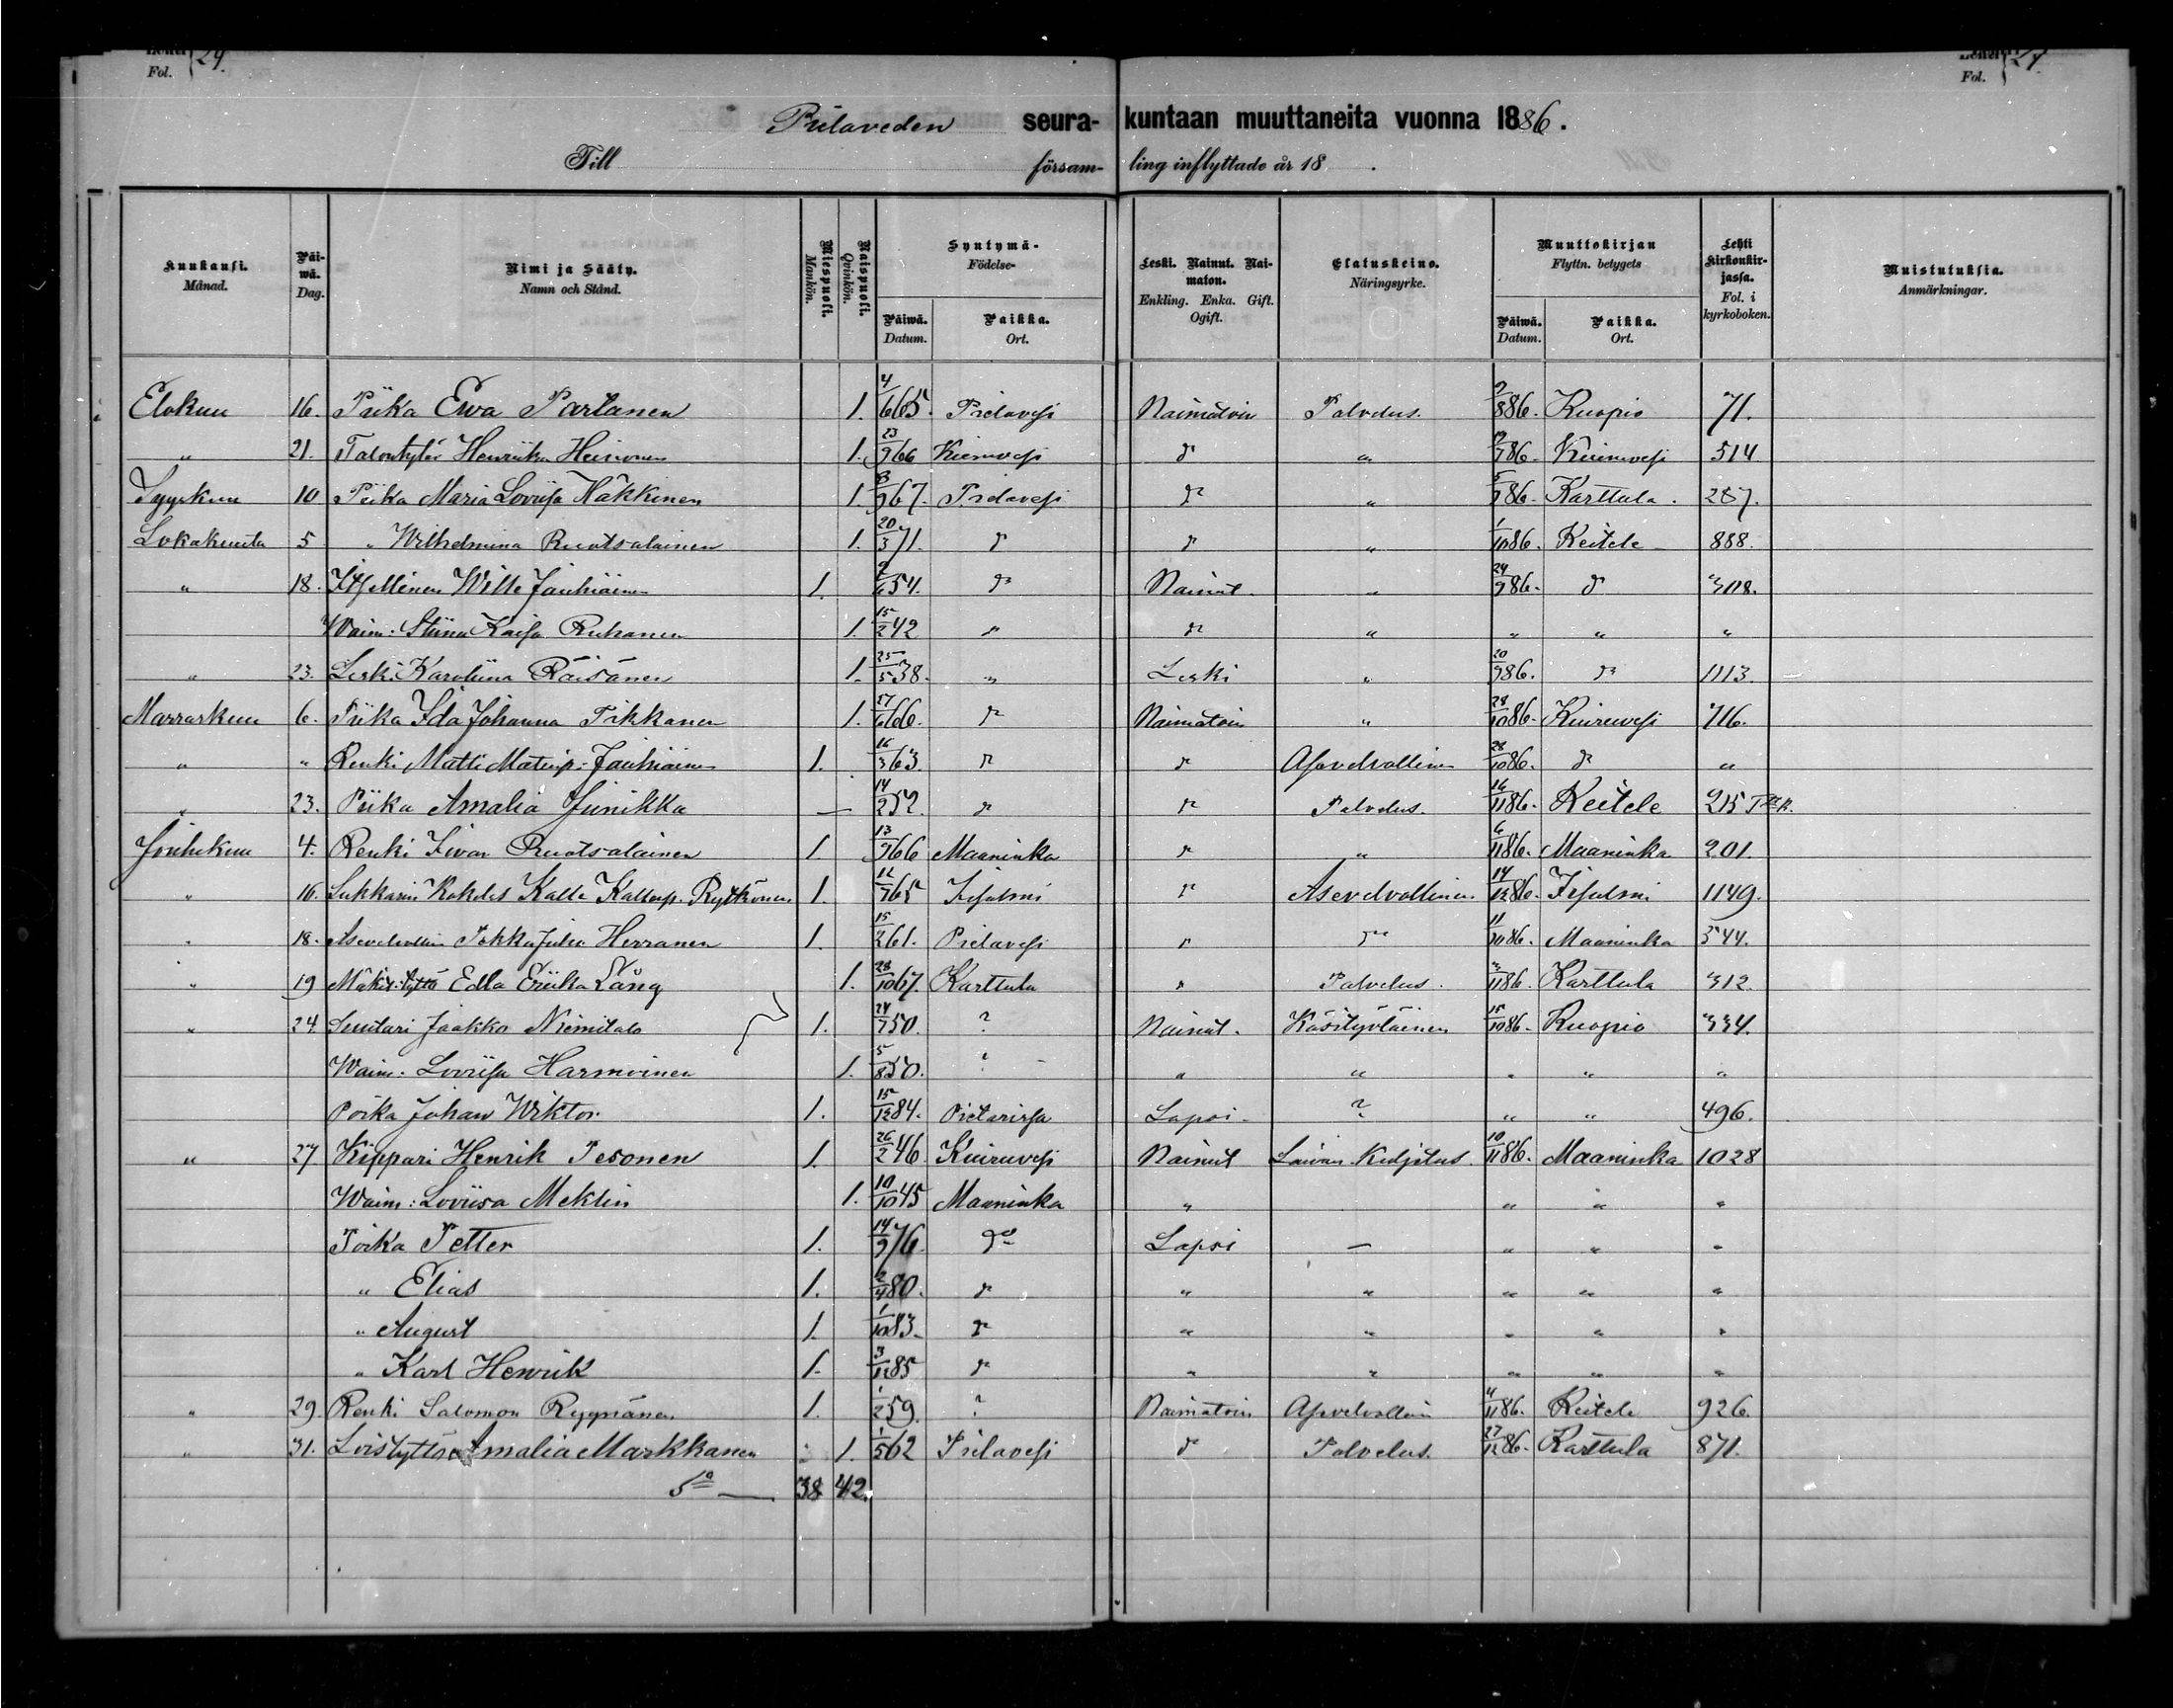 Fol. 24.
Fol. 24
Pielaveden seura- kuntaan muuttaneita vuonna 1886.
Till försam- ling inflyttade år 18 .
Kuukausi. Månad. Päi-wä. Dag. Nimi ja Sääty. Namn och Stånd. Miespuoli. Mankön. Naispuoli. Qvinkön. Syntymä- Födelse- Päiwä. Datum. Paikka. Ort. Leski. Nainut. Nai-maton. Enkling. Enka. Gift. Ogift. Elatuskeino. Näringsyrke. Muuttokirjan Flyttn. betygets Päiwä. Datum. Paikka. Ort. Lehti Kirkonkir-jassa. Fol. i kyrkoboken. Muistutuksia. Anmärkningar.
Elokuu 16. Piika Ewa Partanen 1. 4/6 65. Pielavesi Naimatoin Palvelus. 2/8 86. Kuopio 71.
" 21. Talontytär Henriika Heinonen 1. 23/9 66 Kiuruvesi d " /7 86. Kiuruvesi 514
Syyskuu 10 Piika Maria Lovisa Häkkinen 1. 8/9 67. Pielavesi d " 5/9 86. Karttula. 257.
Lokakuuta 5 " Wilhelmina Ruotsalainen 1. 20/3 71. d d " 1/10 86. Keitele 888.
" 18. Itsellinen Wille Jauhiainen 1. /6 54. d Nainut. " 24/9 86. d 308.
Waim: Stiina Kaisa Ruhanen 1. 15/2 42 " d " " " "
" 23. Leski Karoliina Räisänen 1. 25/5 38. " Leski " 20/9 86. d 1113.
Marraskuu 6. Piika Ida Johanna Tikkanen 1. 27/6 66. d Naimatoin " 28/10 86. Kiuruvesi 716.
" " Renki Matti Matinp. Jauhiainen 1. 16/3 63. d d Asevelvollinen 28/10 86. d "
" 23. Piika Amalia Junikka — 14/2 52. d d Palvelus. 16/11 86. Keitele 215
Joulukuu 4. Renki Iivar Ruotsalainen 1. 13/9 66 Maaninka d " 6/11 86. Maaninka 201.
" 16. Kalle Kallenp. Rytkönen 1. 12/7 65 Iisalmi d Asevelvollinen 14/12 86. Iisalmi 1149.
" 18. Asevelvollin Pekka Juho Herranen 1. 15/2 61. Pielavesi d d 11/10 86. Maaninka 544.
" 19 Mäkit: tyttö Edla Eriika Lång 1. 28/10 67. Karttula d Palvelus. 3/11 86. Karttula 312.
" 24. Suutari Jaakko Niemitalo 1. 24/7 50. ? Nainut. Käsityöläinen 15/10 86. Kuopio 334.
Waim. Loviisa Harmoinen 1. 5/8 50. ? " " " " "
Poika Johan Wiktor 1. 15/12 84. Pietarissa Lapsi. ? " " 496.
" 27. Kippari Henrik Pesonen 1. 26/2 46 Kiuruvesi Nainut Laivan Kuljetus. 10/11 86. Maaninka 1028
Waim: Loviisa Meklin 1. 10/10 45 Maaninka " " " "
Poika Petter 1. 14/9 76. do Lapsi — " " "
" Elias 1. 2/4 80. d " " " " "
" August 1. 1/10 83. d " " " " "
" Karl Henrik 1. 3/12 85 d " " " " "
" 29. Renki Salomon Ryynänen 1. 1/2 59. ? Naimatoin Asevelvollin 4/11 86. Keitele 926.
" 31. Loistyttö Amalia Markkanen 1. 1/5 62 Pielavesi d Palvelus. 27/12 86. Karttula 871.
Sa — 38 42.